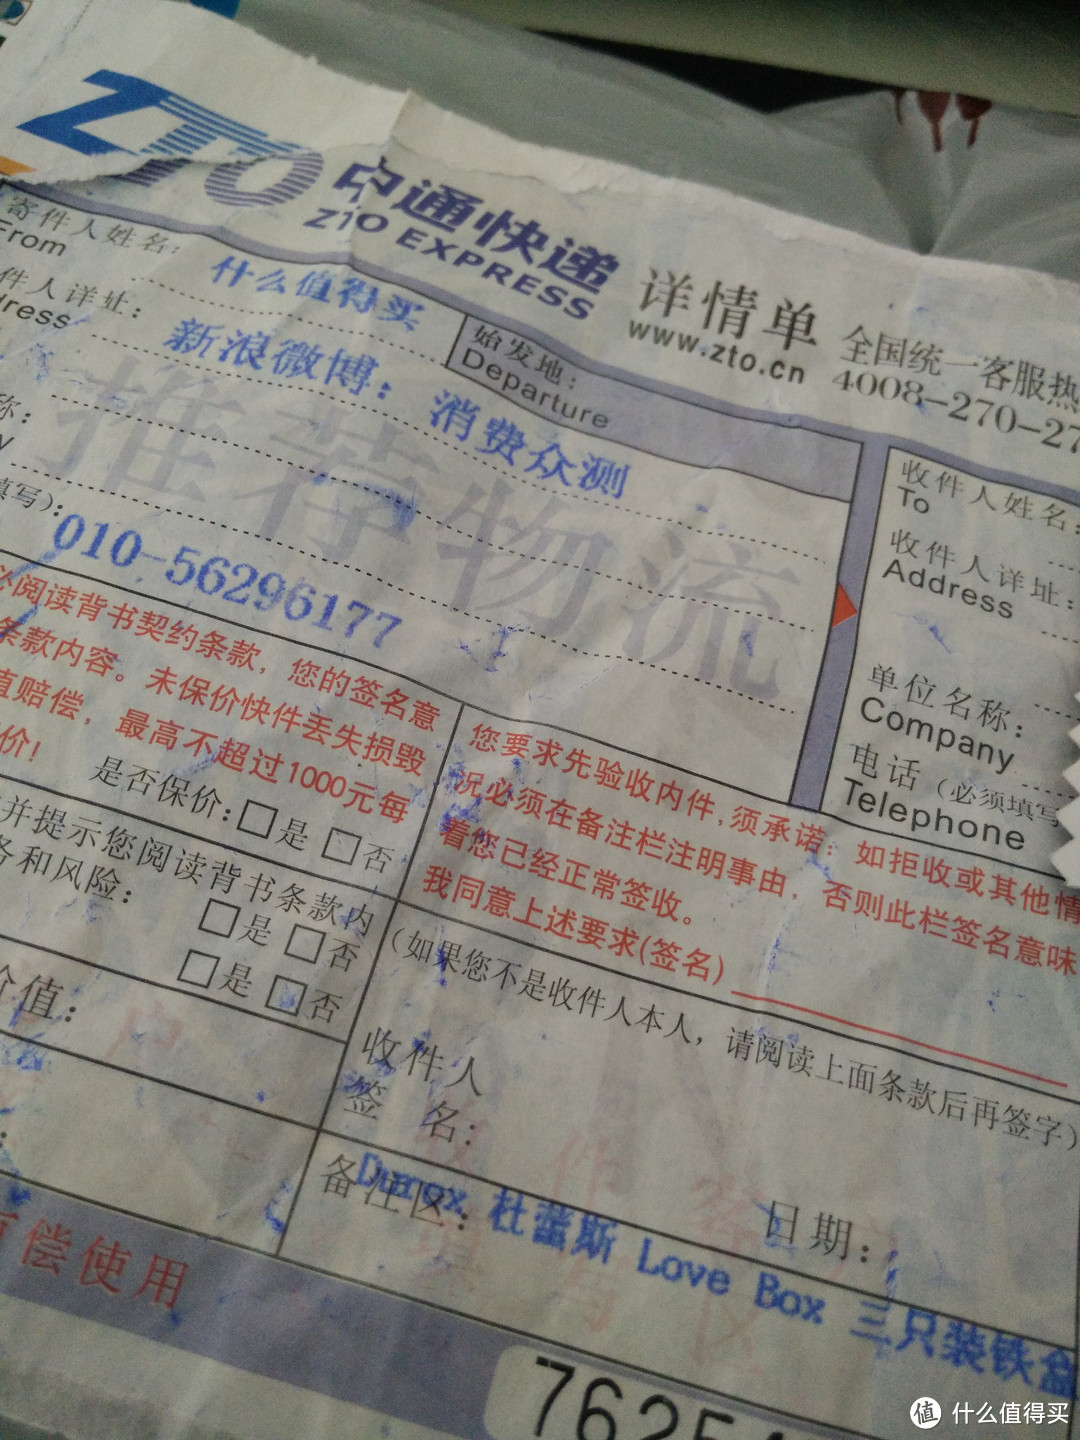 ZTO 中通快递
ZTO EXPRESS
详情单
www.zto.cn
全国统一客服热
4008-270-27
寄件人姓名:
From
什么值得买
始发地:
Departure
件人详址:
ress
新浪微博: 消费众测
推荐物流
称:
y
填写):
010-56296177
收件人姓名:
To
收件人详址:
Address
单位名称:
Company
电话 (必须填写
Telephone
阅读背书契约条款, 您的签名意
条款内容。未保价快件丢失损毁
值赔偿, 最高不超过1000元每
价!
是否保价: □是 □否
并提示您阅读背书条款内
务和风险:
□是 □否
□是 □否
价值:
您要求先验收内件,须承诺: 如拒收或其他情
况必须在备注栏注明事由, 否则此栏签名意味
着您已经正常签收。
我同意上述要求(签名)
(如果您不是收件人本人, 请阅读上面条款后再签字)
收件人
签 名:
日期:
备注区:
Durex 杜蕾斯 Love Box 三只装铁盒
偿使用
7625
值 什么值得买